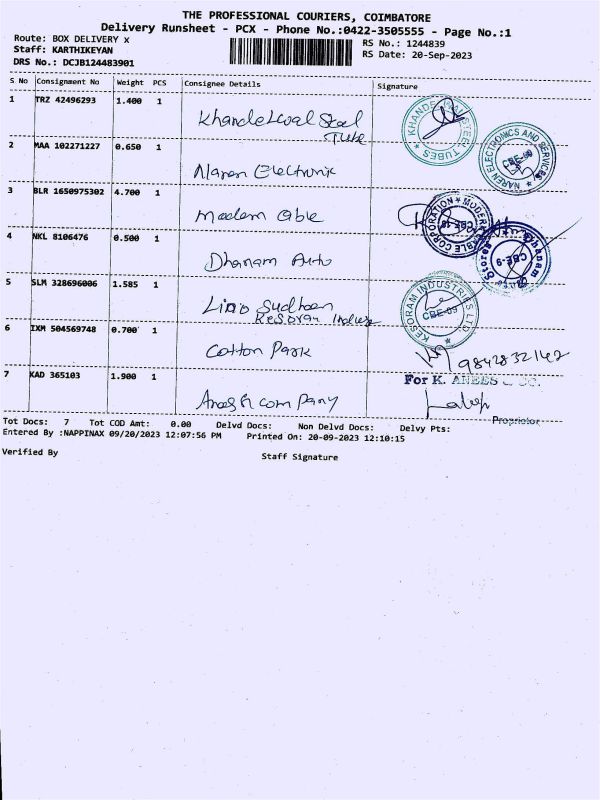 THE PROFESSIONAL COURIERS, COIMBATORE
Delivery Runsheet - PCX - Phone No.:0422-3505555 - Page No.:1
Route: BOX DELIVERY x
RS No.: 1244839
Staff: KARTHIKEYAN
RS Date: 20-Sep-2023
DRS No.: DCJB124483901
S No Consignment No Weight PCS Consignee Details Signature
1 TRZ 42496293 1.400 1
Khandelwal Steel
Tube
KHANDELWAL STEEL TUBES
2 MAA 102271227 0.650 1
Naren Electronik
NAREN ELECTRONICS AND SERVICES
CBE-09
3 BLR 1650975302 4.700 1
Modern Cable
MODERN CABLE CORPORATION
CBE-18
4 NKL 8106476 0.500 1
Dhanam Auto
Dhanam Auto Stores
CBE-9
5 SLM 328696006 1.585 1
Sudhan
Kesoram
KESORAM INDUSTRIES LTD
CBE-09
6 IXM 504569748 0.700 1
Cotton Park
9842832142
7 KAD 365103 1.900 1
For K. ANEES & CO.
Anees & company
Proprietor
Tot Docs: 7 Tot COD Amt: 0.00 Delvd Docs: Non Delvd Docs: Delvy Pts:
Entered By :NAPPINAX 09/20/2023 12:07:56 PM Printed On: 20-09-2023 12:10:15
Verified By Staff Signature